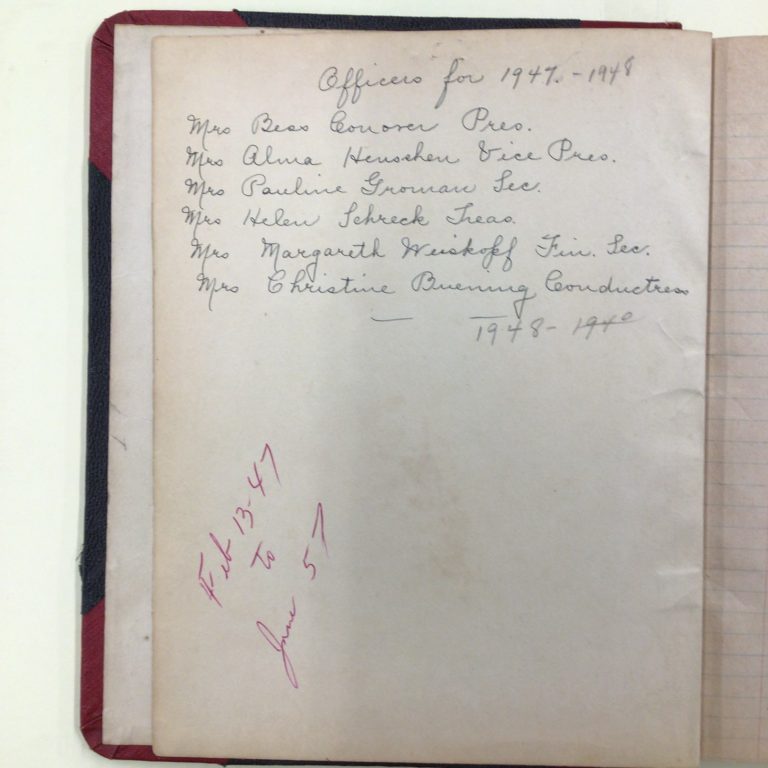 Officers for 1947.-1948
Mrs Bess Conover Pres.
Mrs Alma Henschen Vice Pres.
Mrs Pauline Groman Sec.
Mrs Helen Schreck Treas.
Mrs Margareth Weiskopf Fin. Sec.
Mrs Christine Buening Conductress
1948-
Feb 13-47
To
June 57